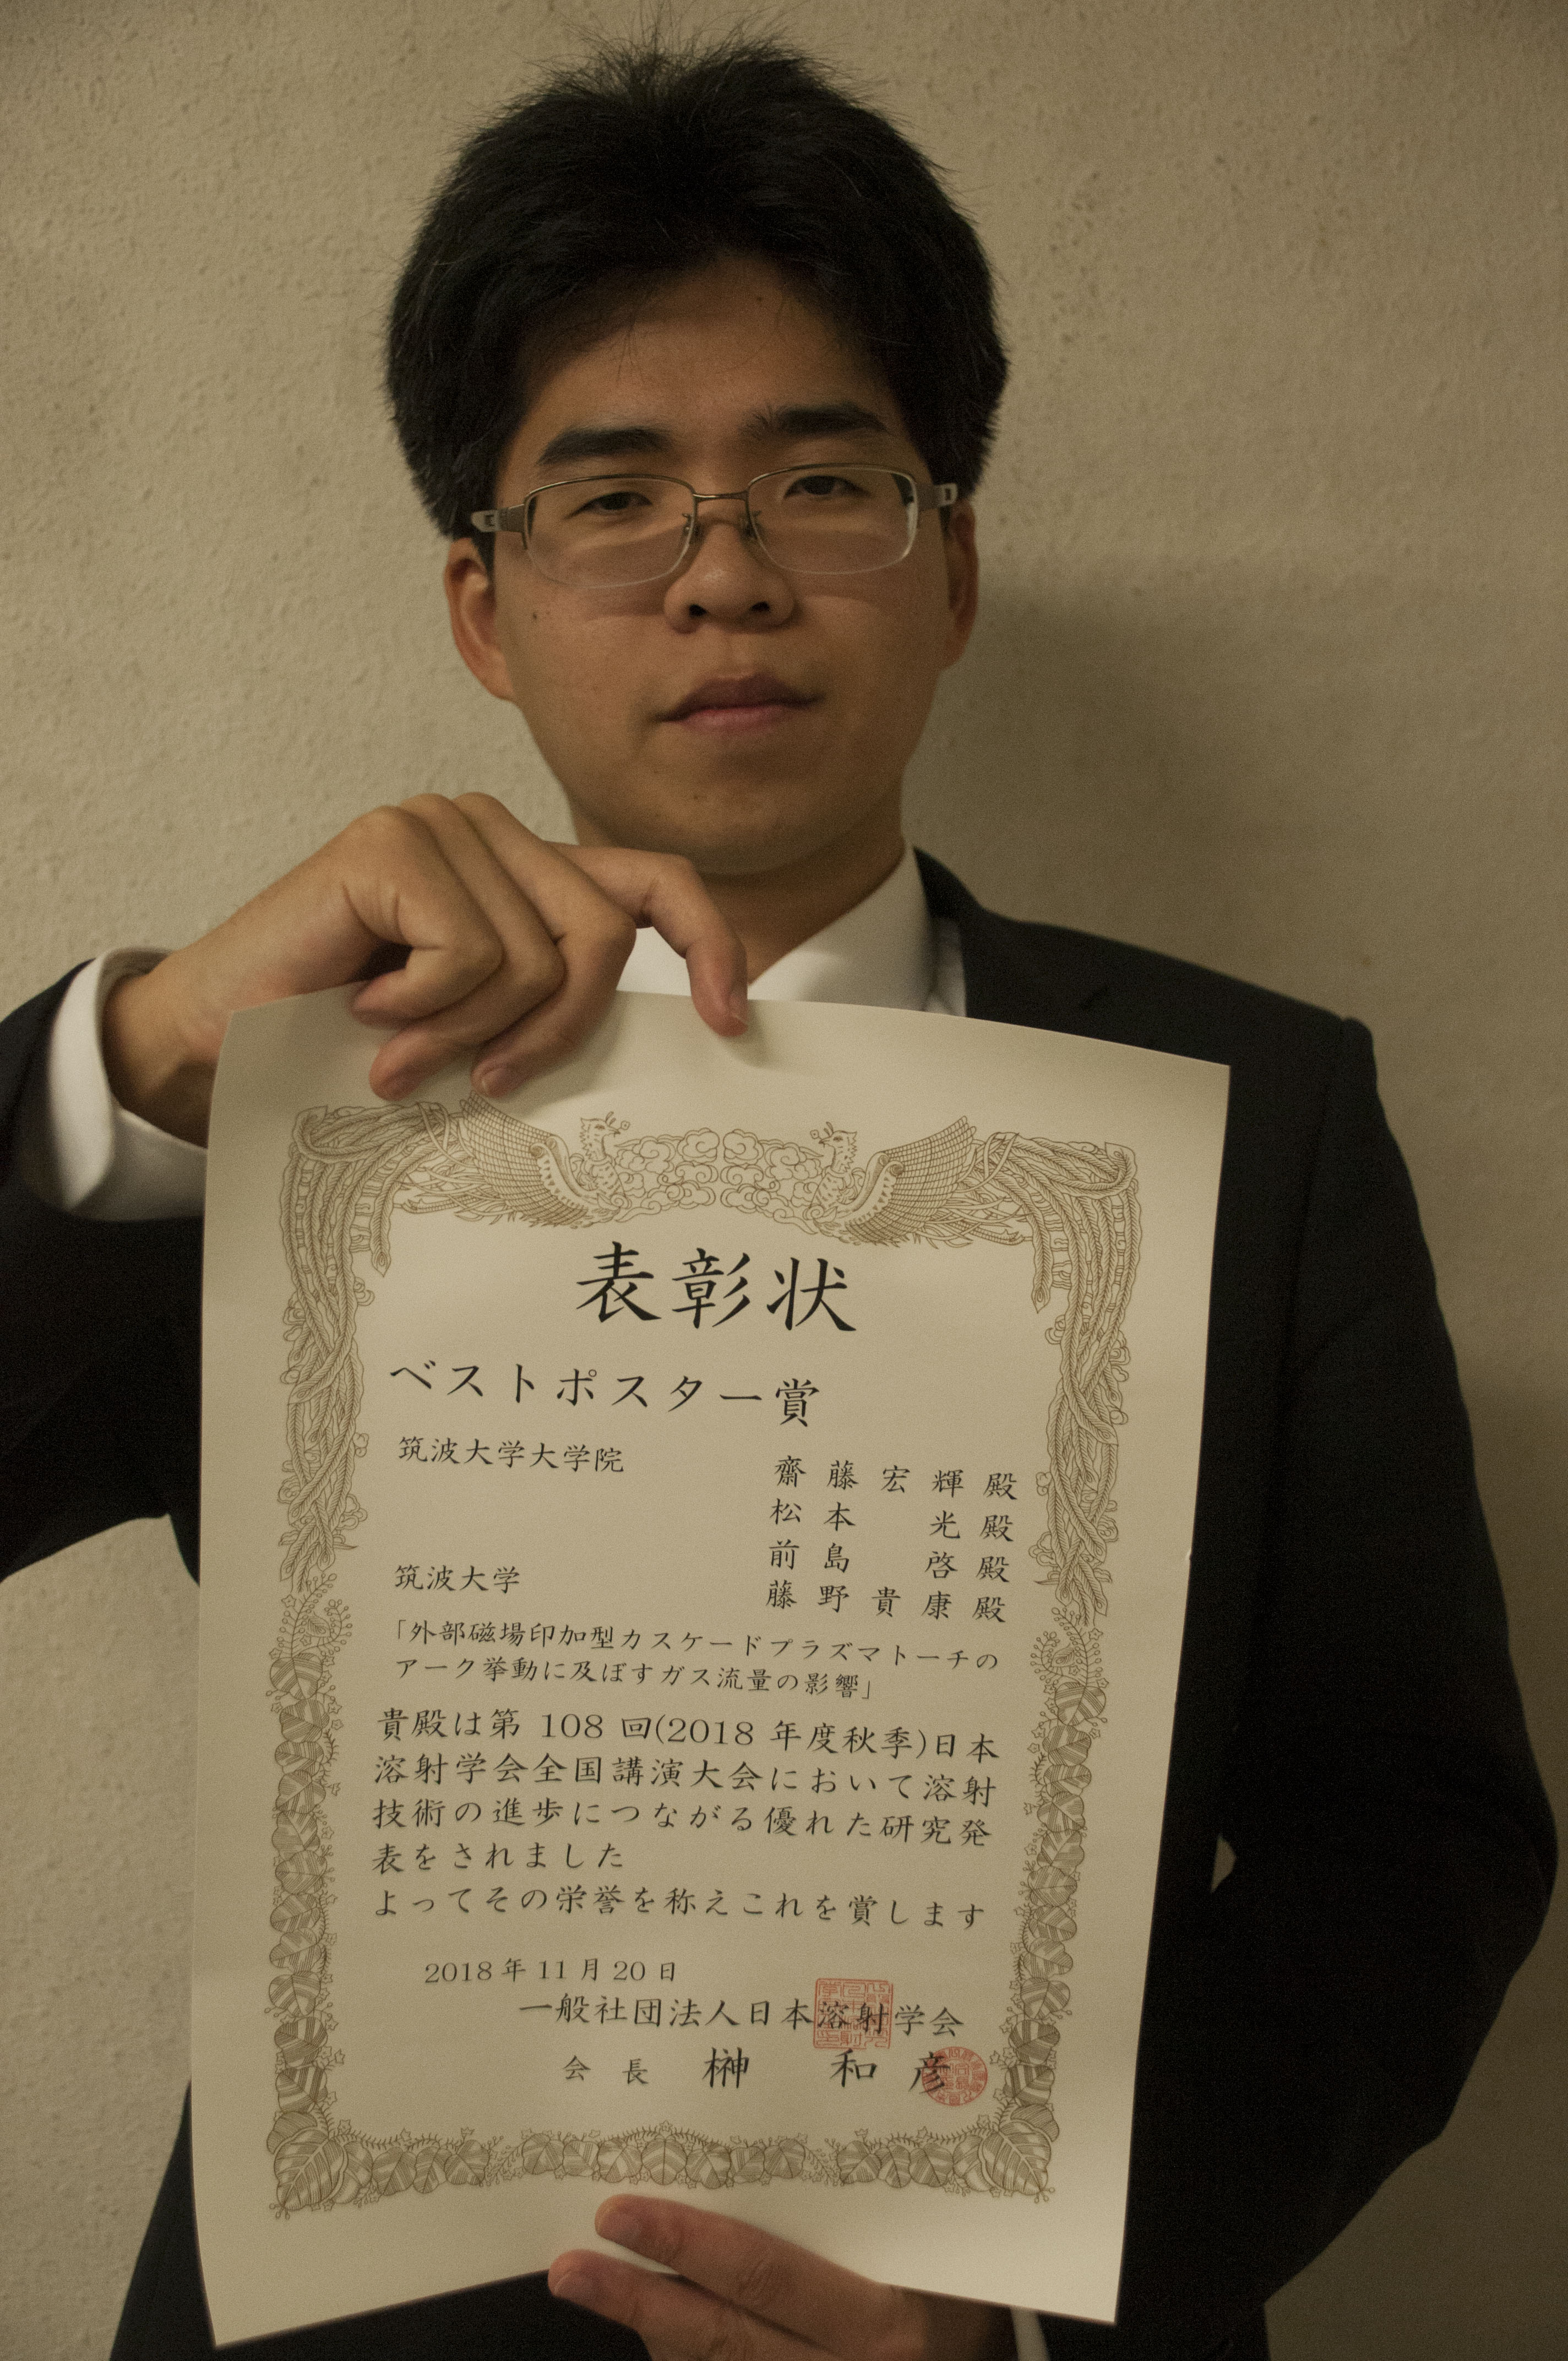 表彰状
ベストポスター賞
筑波大学大学院
齋藤宏輝殿
松本 光殿
前島 啓殿
筑波大学
藤野貴康殿
「外部磁場印加型カスケードプラズマトーチの
アーク挙動に及ぼすガス流量の影響」
貴殿は第 108 回(2018 年度秋季)日本
溶射学会全国講演大会において溶射
技術の進歩につながる優れた研究発
表をされました
よってその栄誉を称えこれを賞します
2018 年 11 月 20 日
一般社団法人日本溶射学会
会長 榊 和彦